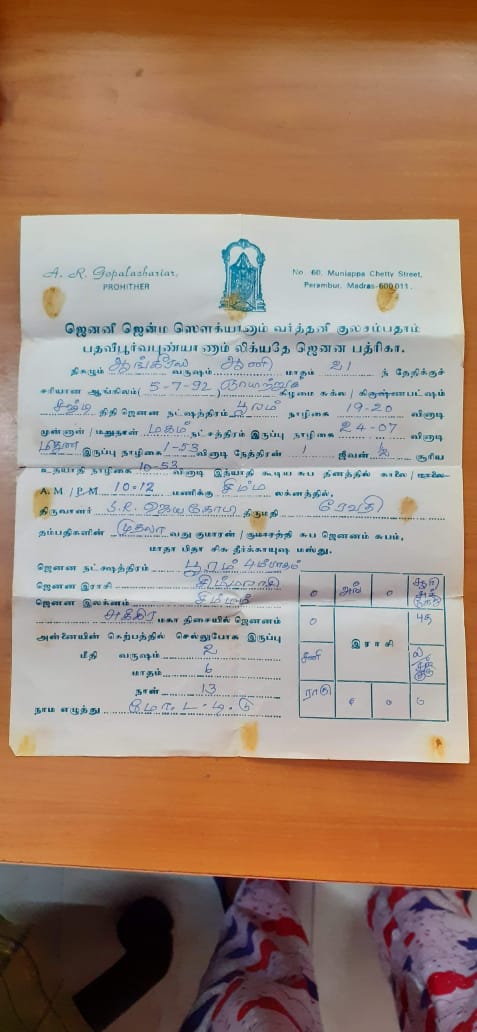 A. R. Gopalachariar,
PROHITHER
No. 60, Muniappa Chetty Street,
Perambur, Madras-600 011.
ஜெனனீ ஜென்ம ஸௌக்யானும் வர்த்தனீ குலசம்பதாம்
பதவீபூர்வபுண்யாணாம் லிக்யதே ஜெனன பத்ரிகா.
திகழும் ஆங்கீரஸ வருஷம் ஆணி மாதம் 21 ந் தேதிக்குச்
சரியான ஆங்கிலம் (5-7-92 ஞாயற்று) கிழமை சுக்ல / கிருஷ்ணபட்சம்
திதி ஜெனன நட்ஷத்திரம் பூரம் நாழிகை 19-20 வினாடி
முன்னாள் / மறுநாள் மகம் நட்சத்திரம் இருப்பு நாழிகை 24-07 வினாடி
இருப்பு நாழிகை 1-53 வினாடி நேத்திரன் 1 ஜீவன் சூரிய
உதயாதி நாழிகை 10-53 வினாடி இத்யாதி கூடிய சுப தினத்தில் காலை / மாலை
A.M / P.M 10-12 மணிக்கு சிம்ம லக்னத்தில்,
திருவாளர் S.R. ஜெயகோபி திருமதி ரேவதி
தம்பதிகளின் முதலா வது குமாரன் / குமாரத்தி சுப ஜெனனம் சுபம்,
மாதா பிதா சிசு தீர்க்காயுஷ மஸ்து,
ஜெனன நட்சஷத்திரம் பூரம் 4ம்பாதம்
ஜெனன இராசி சிம்மராசி
ஜெனன இலக்னம் சிம்மம்
சுக்கிர மகா திசையில் ஜெனனம்
அன்னையின் கெற்பத்தில் செல்லுபோக இருப்பு
மீதி வருஷம் 2
மாதம் 6
நாள் 13
நாம எழுத்து மோ. ட. டி. டு
இராசி
சனி
ராகு